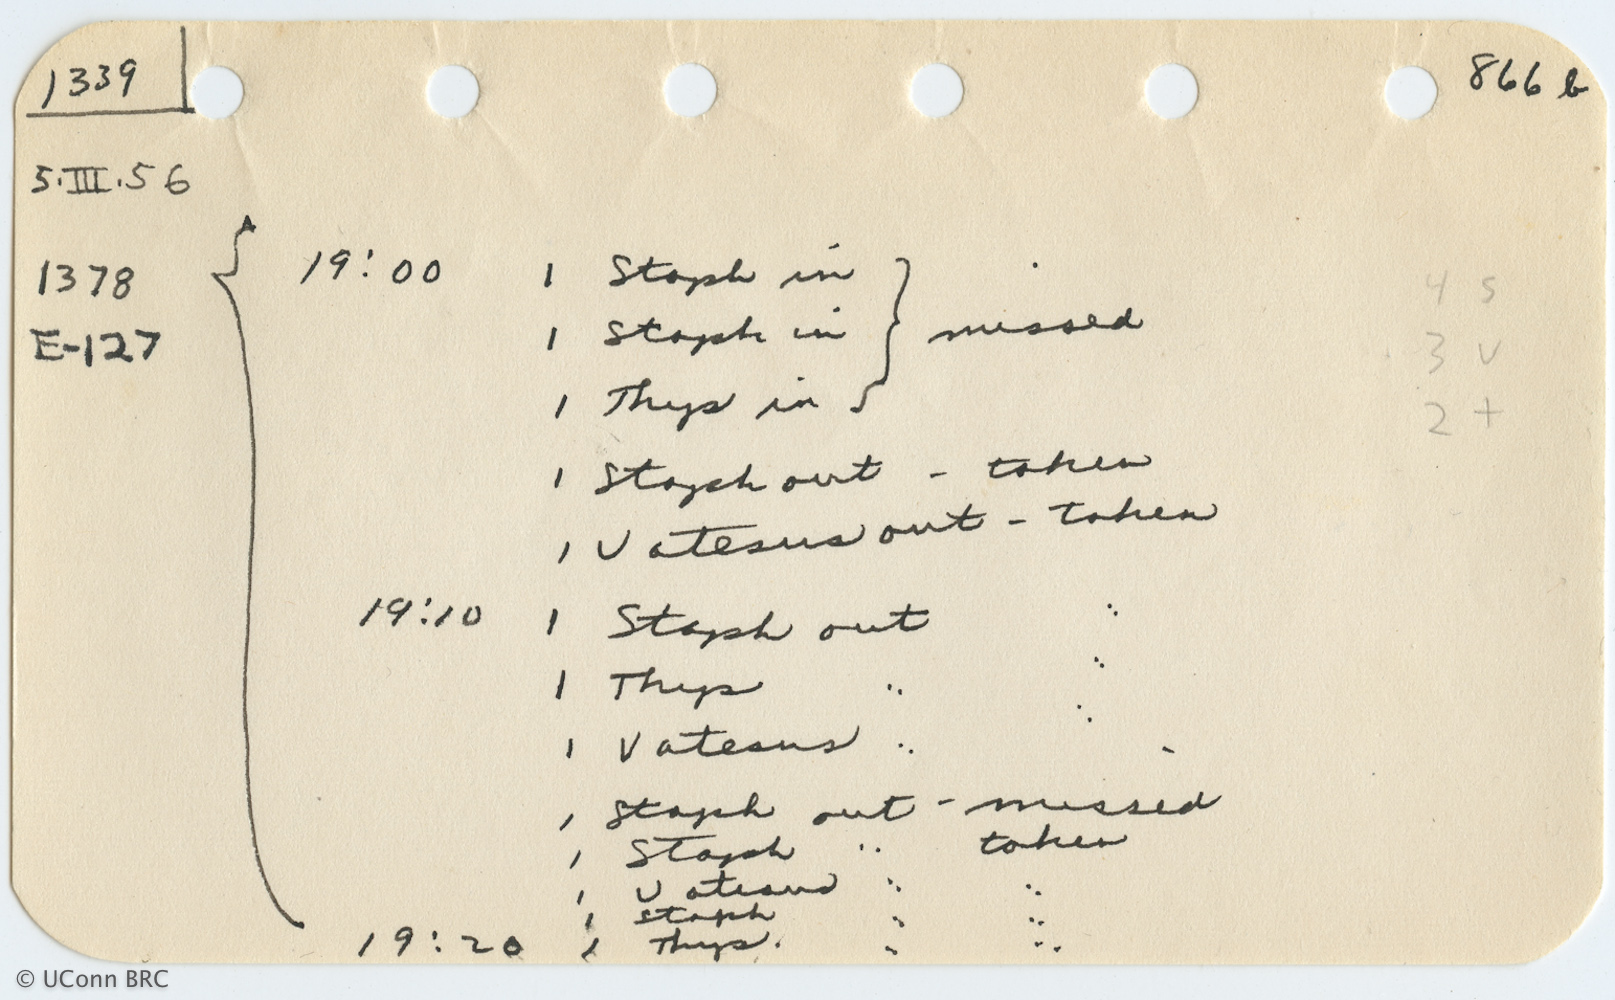 1339
866 b
5.III.56
1378
E-127
19:00 1 Staph in } missed
1 Staph in
1 Thys in
4 s
3 v
2 t
1 Staph out - taken
1 Vatesus out - taken
19:10 1 Staph out "
1 Thys " "
1 Vatesus " "
1 Staph out - missed
1 Staph " taken
1 Vatesus " "
1 Staph " "
19:20 1 Thys. " "
© UConn BRC